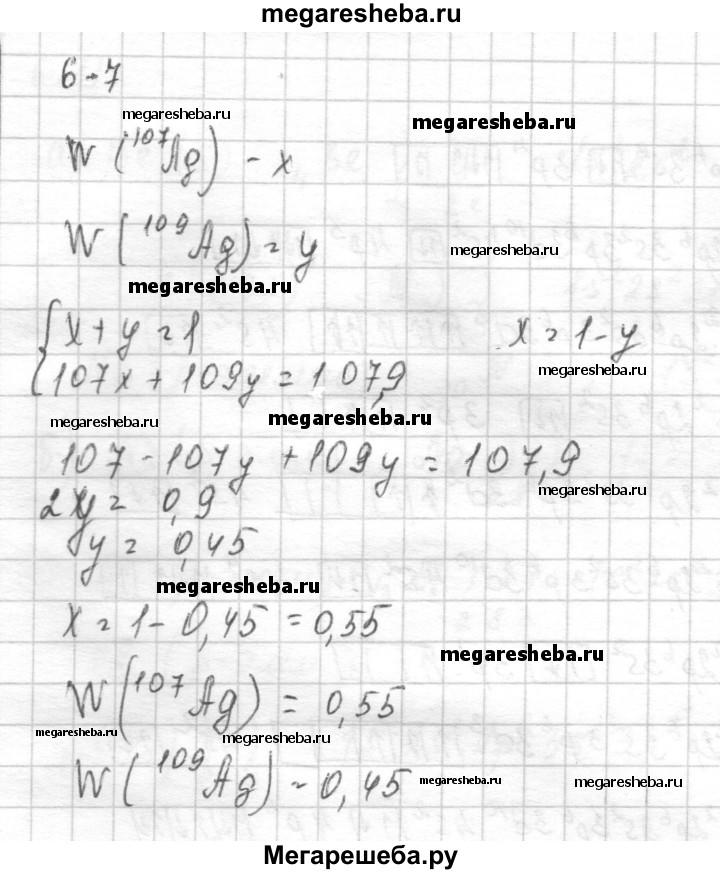 megaresheba.ru
6-7
megaresheba.ru
megaresheba.ru
W (¹⁰⁷Ag) - x
W (¹⁰⁹Ag) = y
megaresheba.ru
megaresheba.ru
{ x + y = 1
x = 1 - y
107x + 109y = 107,9
megaresheba.ru
megaresheba.ru
megaresheba.ru
107 - 107y + 109y = 107,9
megaresheba.ru
2y = 0,9
y = 0,45
megaresheba.ru
x = 1 - 0,45 = 0,55
megaresheba.ru
W (¹⁰⁷Ag) = 0,55
megaresheba.ru
megaresheba.ru
W (¹⁰⁹Ag) - 0,45
megaresheba.ru
megaresheba.ru
Мегарешеба.ру